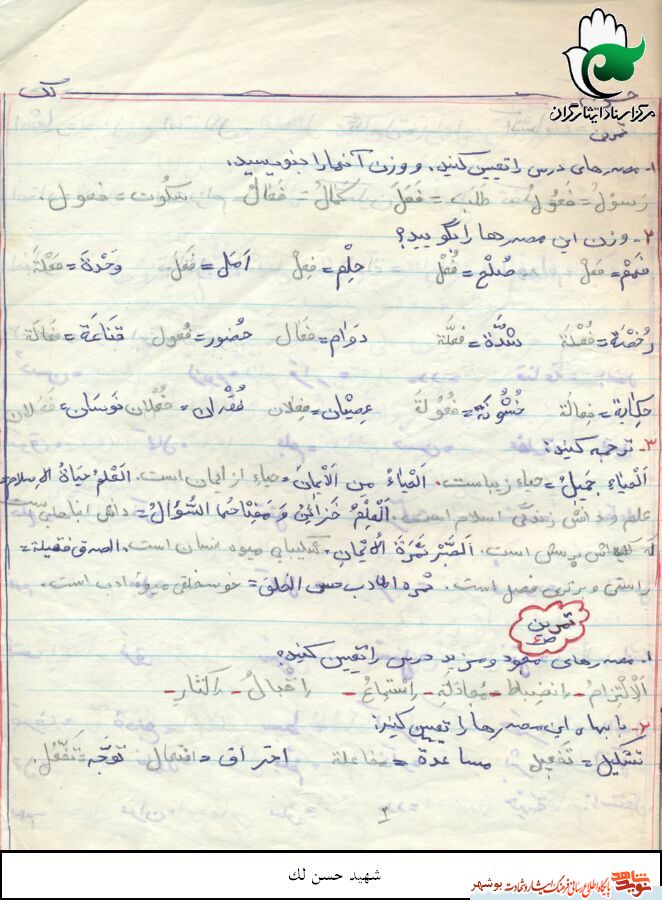 مرکز اسناد ایثارگران
لک
تمرین
۱- مصدرهای درس را تعیین کنید، و وزن آنها را بنویسید.
رَسولُ = فَعُولُ طَلَبَ = فَعَلَ کَمالُ = فَعالُ سکوت = فعول.
۲- وزن این مصدرها را بگویید؟
فَهْمْ = فَعْلْ صُلْح = فُعْلْ حِلْم = فِعْلْ اَمَل = فَعَل وَحْدَة = فَعْلَة
رُخصَة = فُعْلَة شدَّة = فعلَّة دَوام = فَعال حضور = فُعول قَناعَة = فَعالَة
حِکایة = فِعالة خُشُونَة = فُعُولَة عِصْیان = فِعْلان غُفْران = فُعْلان نَوَسان = فَعَلان
۳- ترجمه کنید:
اَلْحَیاءُ جَمیلُ = حیاء زیباست. اَلْحَیاءُ مِنَ الْاِیمانِ = حیاء از ایمان است. اَلْعِلْمُ حَیاةُ الاسلام =
علم و دانش زندگی اسلام است. اَلْعِلْمُ خَزائِنُ وَ مِفْتاحُها السُّؤالُ = دانش انبارهایی ست
که کلیدش پرسش است. اَلصَّبْرُ ثَمَرَةُ الْاِیمانِ = شکیبایی میوه ایمان است. الصدق فضیلة =
راستی و برتری فضل است. ثمره الادب حسن الخلق = خوش خلقی میوهٔ ادب است.
تمرین
۱- مصدرهای مجرد و مزید درس را تعیین کنید؟
اَلْاِلْتِزامُ - اِنضِباط - مُجادَلَة - اِسْتِماعُ - اِقْبالُ - اِکثار -
۲- باب این مصدرها را تعیین کنید:
تَشْکیل = تَفْعیل مساعدة = مفاعلة احتراق = افتعال تَوَجُّه = تَفَعُّل.
۲
شهید حسن لك
نوید شاهد
پایگاه اطلاع رسانی فرهنگ ایثار و شهادت بوشهر